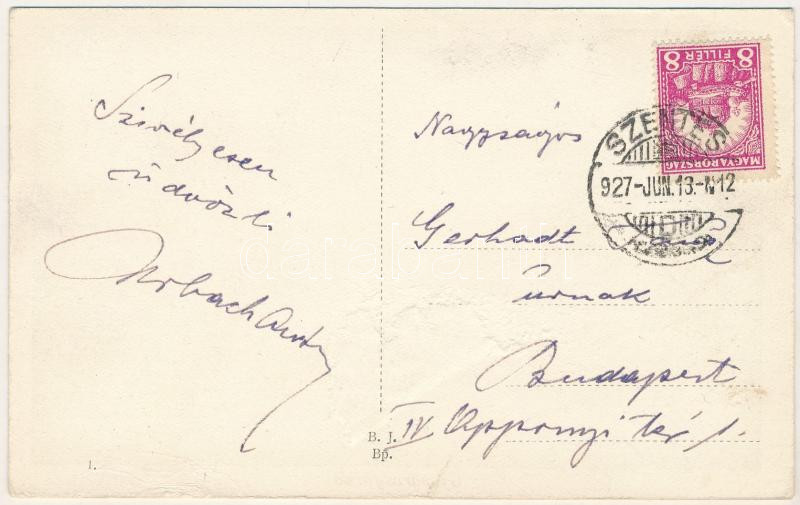 Szivélyesen
üdvözli
Nagyságos
Gerhadt
urnak
Budapest
IV Apponyi tér 1.
8 FILLÉR 8
MAGYARORSZÁG
SZENTES
927-JUN.13.-N12
B. J.
Bp.
1.